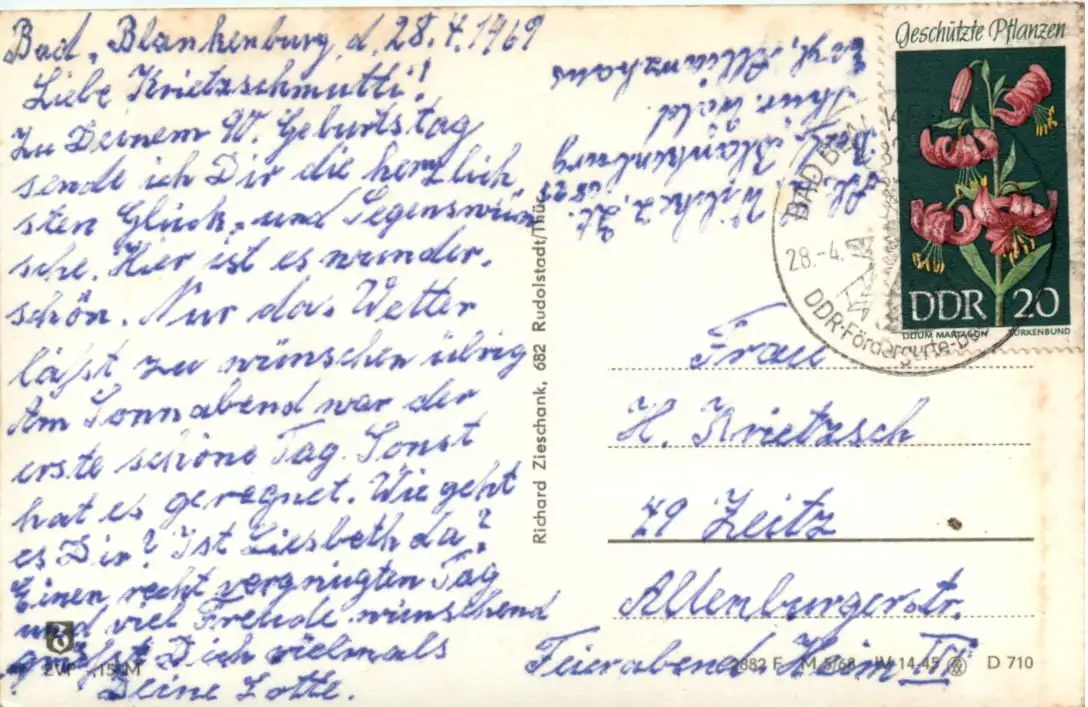 Bad-Blankenburg, d. 28.4.1969
Liebe Krietzschmutti!
Zu Deinem 90. Geburtstag
sende ich Dir die herzlich-
sten Glück- und Segenswün
sche. Hier ist es wunder-
schön. Nur das Wetter
läßt zu wünschen übrig
Am Sonnabend war der
erste schöne Tag. Sonst
hat es geregnet. Wie geht
es Dir? Ist Liesbeth da?
Einen recht vergnügten Tag
und viel Freude wünschend
grüßt Dich vielmals
Deine Lotte.
z. Zt.
6823
Blankenburg
Thür. Wald
Evgl. Allianzhaus
Richard Zieschank, 682 Rudolstadt/Thür.
Geschützte Pflanzen
DDR 20
LILIUM MARTAGON TÜRKENBUND
BAD BLAN
28.-4.
Frau
H. Krietzsch
49 Zeitz
Altenburgerstr.
Feierabend-Heim III
2882 F M 5/68 IV-14-45 D 710
2VP ,15 M